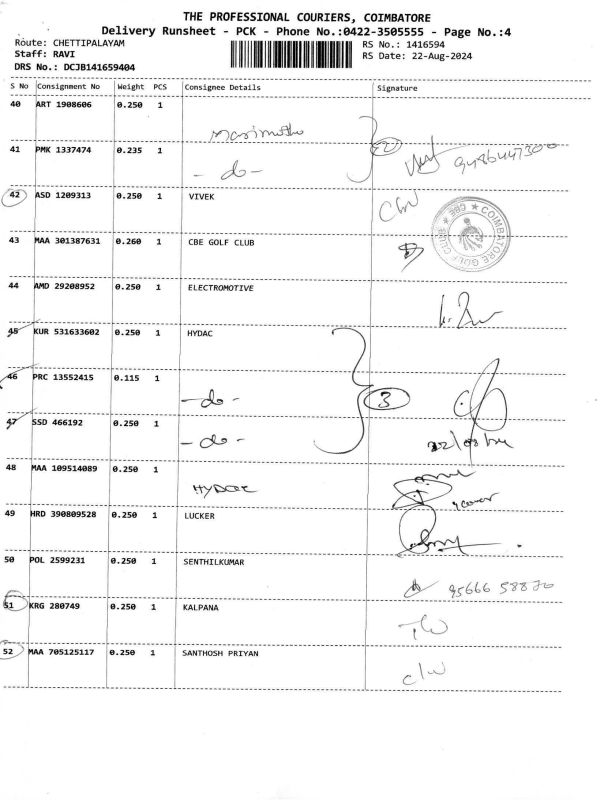 THE PROFESSIONAL COURIERS, COIMBATORE
Delivery Runsheet - PCK - Phone No.:0422-3505555 - Page No.:4
Route: CHETTIPALAYAM
RS No.: 1416594
Staff: RAVI
RS Date: 22-Aug-2024
DRS No.: DCJB141659404
S No Consignment No Weight PCS Consignee Details Signature
40 ART 1908606 0.250 1
41 PMK 1337474 0.235 1 - do -
2
42 ASD 1209313 0.250 1 VIVEK
COIMBATORE GOLF CLUB ★ CBE ★
43 MAA 301387631 0.260 1 CBE GOLF CLUB
44 AMD 29208952 0.250 1 ELECTROMOTIVE
45 KUR 531633602 0.250 1 HYDAC
46 PRC 13552415 0.115 1 - do -
3
47 SSD 466192 0.250 1 - do -
22/08/24
48 MAA 109514089 0.250 1 HYDAC
49 HRD 390809528 0.250 1 LUCKER
50 POL 2599231 0.250 1 SENTHILKUMAR
95666 58870
51 KRG 280749 0.250 1 KALPANA
52 MAA 705125117 0.250 1 SANTHOSH PRIYAN